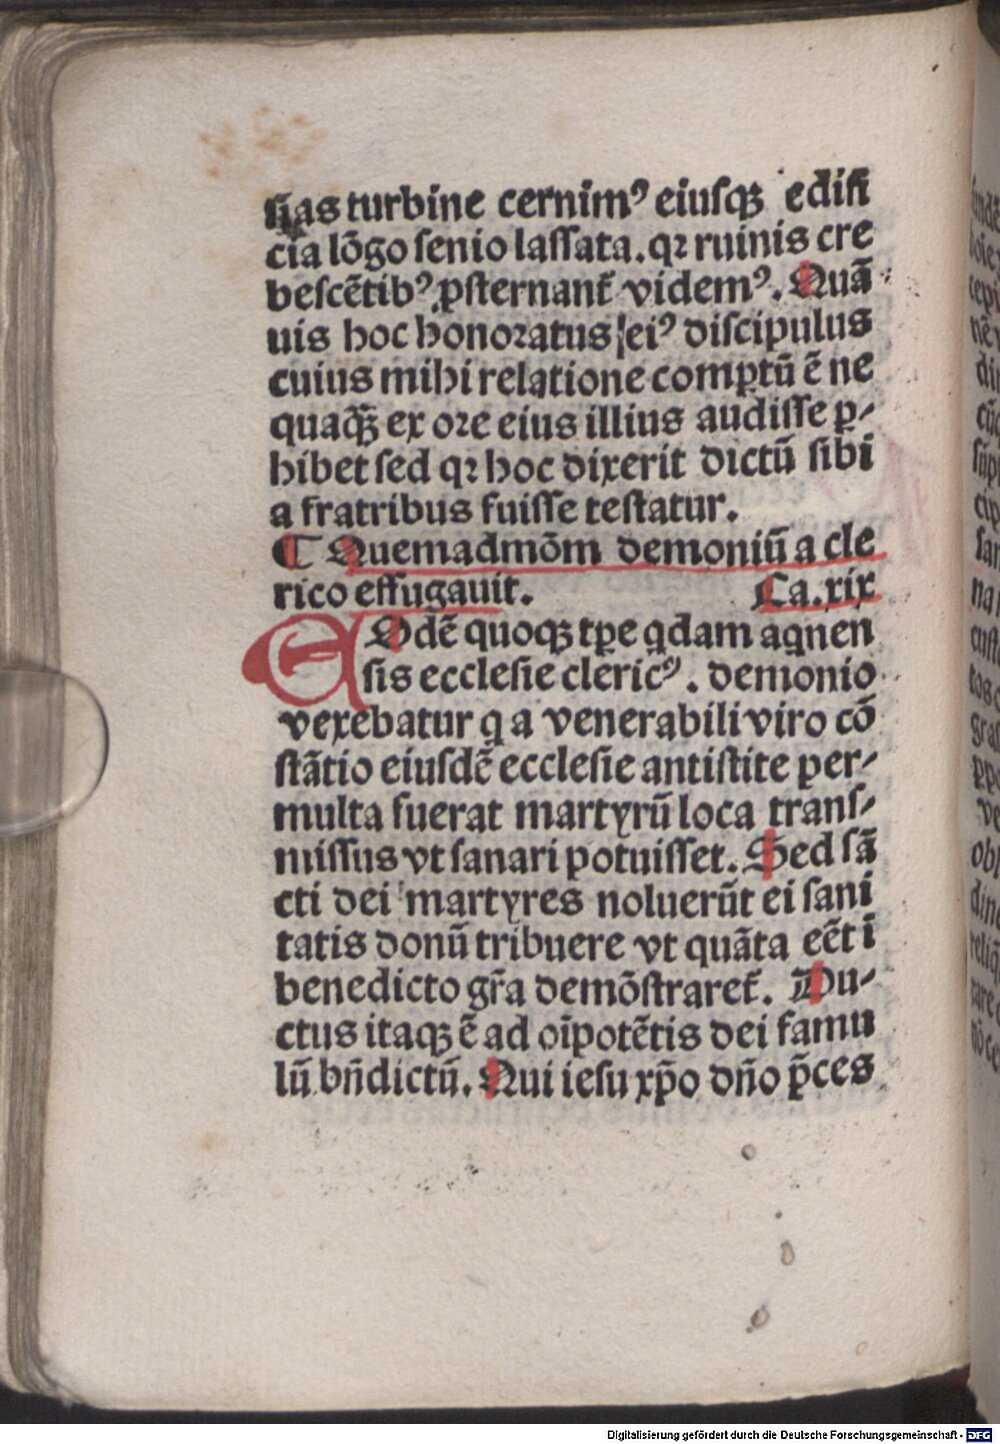 sias turbine cernimꝰ eiusqꝫ edifi
cia lōgo senio lassata. qꝛ ruinis cre
bescētibꝰ ꝓsternant᷑ videmꝰ. Quā
uis hoc honoratus eiꝰ discipulus
cuius mihi relatione comꝑtū ē ne
quaq̄ꝫ ex ore eius illius audisse ꝑ⸗
hibet sed qꝛ hoc dixerit dictū sibi
a fratribus fuisse testatur.
¶ Quemadmōm demoniū a cle
rico effugauit. Ca.xix
EOdē quoqꝫ tꝑe qdam aquen
sis ecclesie clericꝰ. demonio
vexebatur q a venerabili viro cō
stātio eiusdē ecclesie antistite per⸗
multa fuerat martyrū loca trans⸗
missus vt sanari potuisset. Sed sā
cti dei martyres noluerūt ei sani
tatis donū tribuere vt quāta eēt i
benedicto gr̄a demōstraret᷑. Du⸗
ctus itaqꝫ ē ad oīpotētis dei famu
lū bn̄dictū. Qui iesu xp̄o dn̄o p̄ces
Digitalisierung gefördert durch die Deutsche Forschungsgemeinschaft - DFG